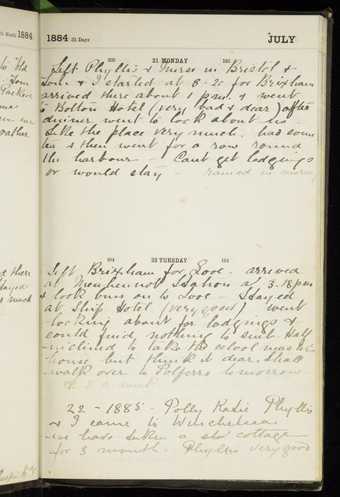 1884
1884 31 Days JULY
203 21 MONDAY
Left Phyllis & Nurse in Bristol &
& I started at 8-20 for Brixham
arrived there about 1 p.m. & went
to Bolton Hotel (very bad & dear) after
dinner went to look about us
like the place very much. had some
tea & then went for a row round
the harbour - Cant get lodgings
or would stay - rained in
204 22 TUESDAY
Left Brixham for Looe - arrived
at Menheniot Station at 3.18 p.m.
& took bus on to Looe - Stayed
at Ship Hotel (very good) went
looking about for lodgings &
could find nothing to suit Half
inclined to take the School master
house but think it dear. Shall
walk over to Polperro tomorrow
22 - 1885 - Polly Katie Phyllis
& I came to Winchelsea
we have taken a cottage
for 3 month. Phyllis very good